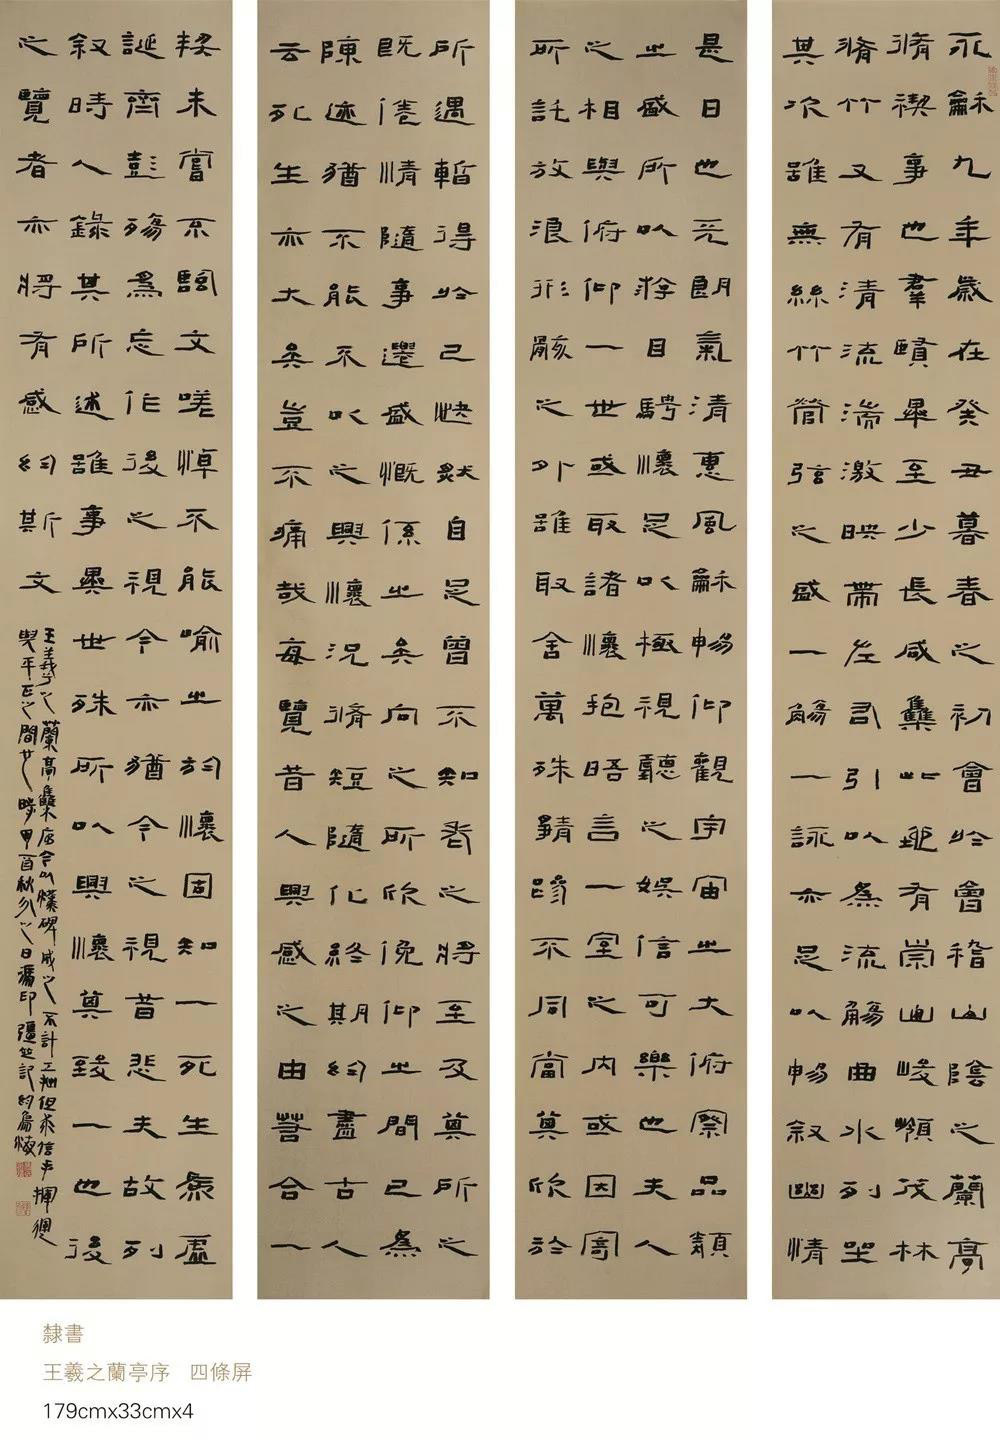 永龢九年歲在癸丑暮春之初會於會稽山陰之蘭亭
脩禊事也羣賢畢至少長咸集此地有崇山峻領茂林
脩竹又有清流湍激映帶左右引以為流觴曲水列坐
其次雖無絲竹管弦之盛一觴一詠亦足以暢敘幽情
是日也天朗氣清惠風龢暢仰觀宇宙之大俯察品類
之盛所以游目騁懷足以極視聽之娛信可樂也夫人
之相與俯仰一世或取諸懷抱晤言一室之內或因寄
所託放浪形骸之外雖取舍萬殊靜躁不同當其欣於
所遇暫得於己快然自足曾不知老之將至及其所之
既倦情隨事遷感慨係之矣向之所欣俛仰之間已為
陳迹猶不能不以之興懷況脩短隨化終期於盡古人
云死生亦大矣豈不痛哉每覽昔人興感之由若合一
契未嘗不臨文嗟悼不能喻之於懷固知一死生為虛
誕齊彭殤為忘作後之視今亦猶今之視昔悲夫故列
敘時人錄其所述雖事異世殊所以興懷其致一也後
之覽者亦將有感於斯文
王羲之蘭亭集序今以漢碑成之不計工拙但求信手揮運
與平正之間 秋分之日馮印強並記於
隸書
王羲之蘭亭序 四條屏
179cmx33cmx4